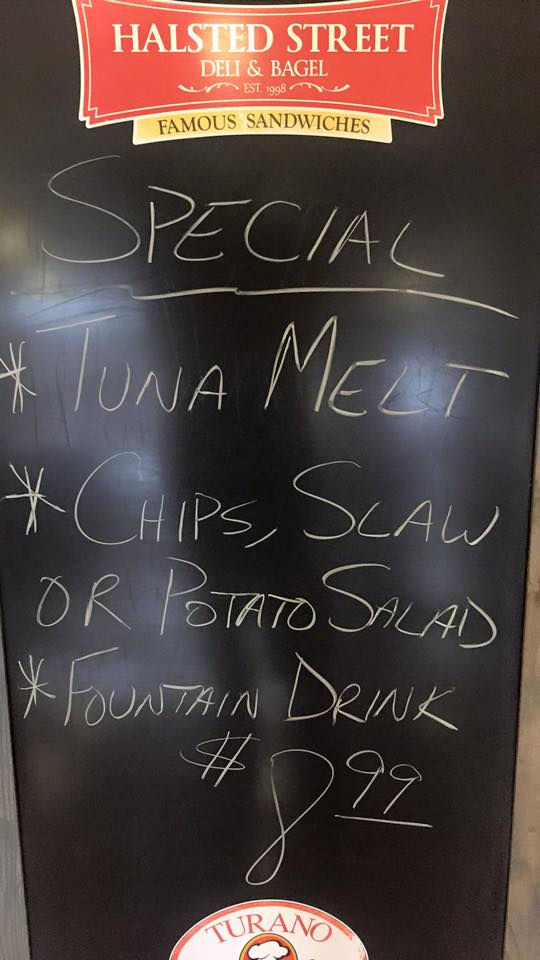 HALSTED STREET
DELI & BAGEL
EST. 1998
FAMOUS SANDWICHES
SPECIAL
* TUNA MELT
* CHIPS, SLAW
OR POTATO SALAD
* FOUNTAIN DRINK
$8.99
TURANO